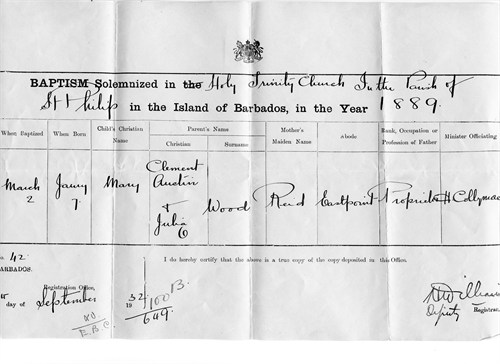 BAPTISM Solemnized in the Holy Trinity Church In the Parish of
St Philip in the Island of Barbados, in the Year 1889.
When Baptized When Born Child's Christian Name Parent's Name Mother's Maiden Name abode Rank, Occupation or Profession of Father Minister Officiating
Christian Surname
March 2 Jany 7. Mary Clement Austin & Julia C Wood Reid Eastpoint Proprietor H
42
ARBADOS.
I do hereby certify that the above is a true copy of the copy deposited in this Office.
Registration Office,
day of September 1932
100 B.
649
Williams
Deputy Registrar.